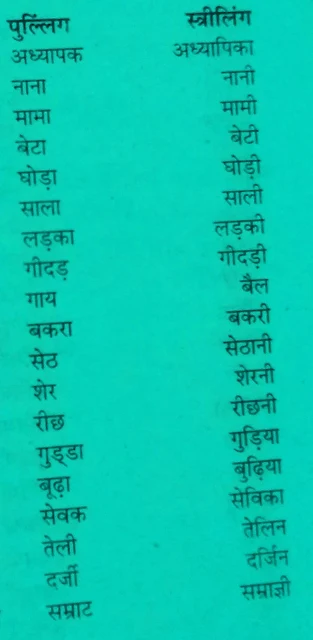 पुल्लिंग स्त्रीलिंग
अध्यापक अध्यापिका
नाना नानी
मामा मामी
बेटा बेटी
घोड़ा घोड़ी
साला साली
लड़का लड़की
गीदड़ गीदड़ी
गाय बैल
बकरा बकरी
सेठ सेठानी
शेर शेरनी
रीछ रीछनी
गुड्डा गुड़िया
बूढ़ा बुढ़िया
सेवक सेविका
तेली तेलिन
दर्जी दर्जिन
सम्राट सम्राज्ञी